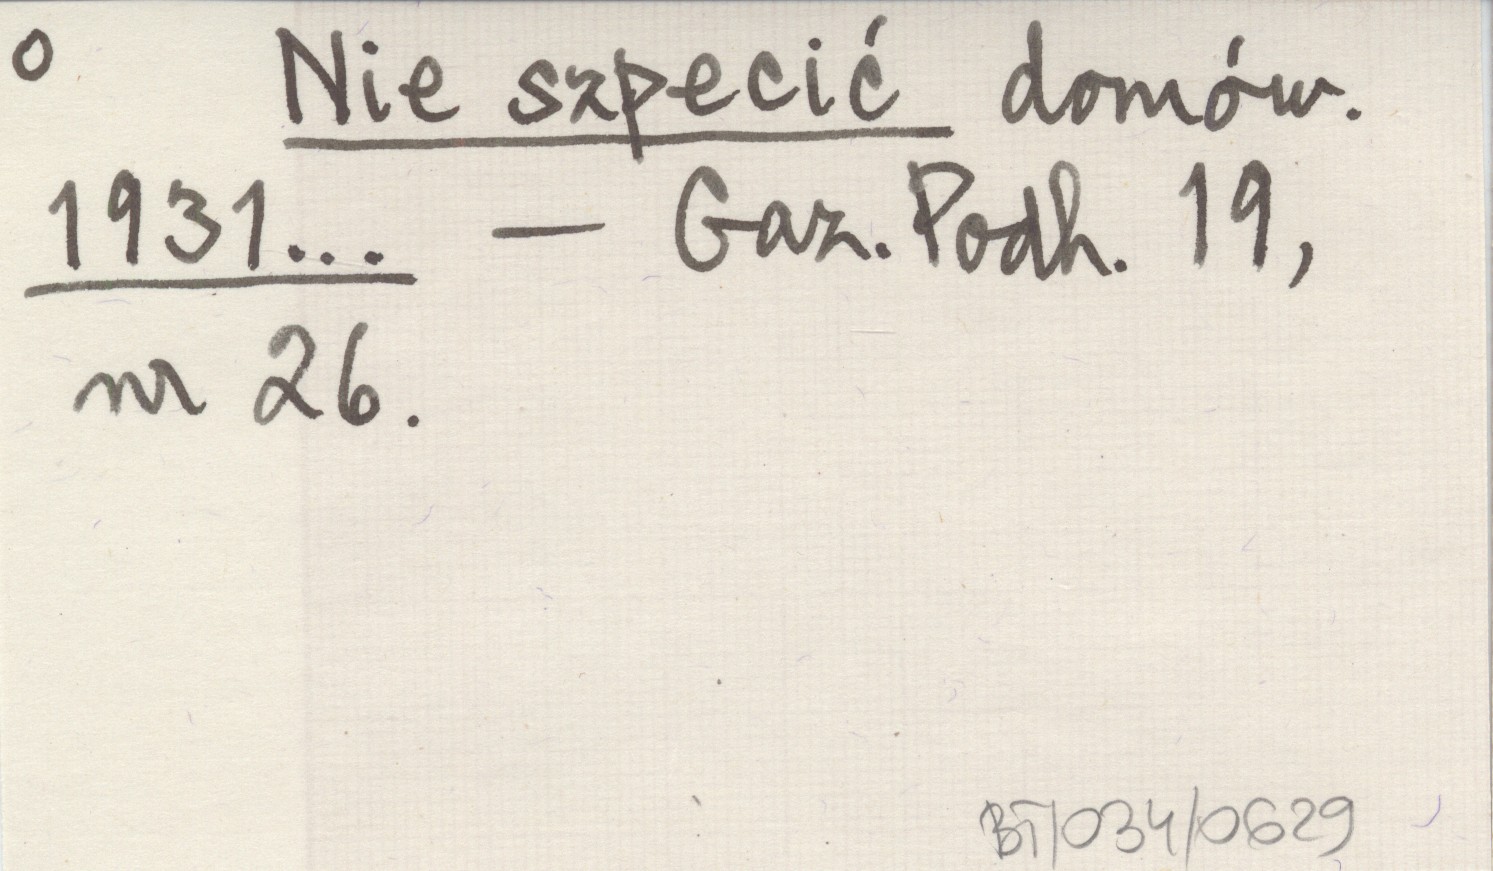 o Nie szpecić domów.
1931... — Gaz. Podh. 19,
nr 26.
BT/034/0629